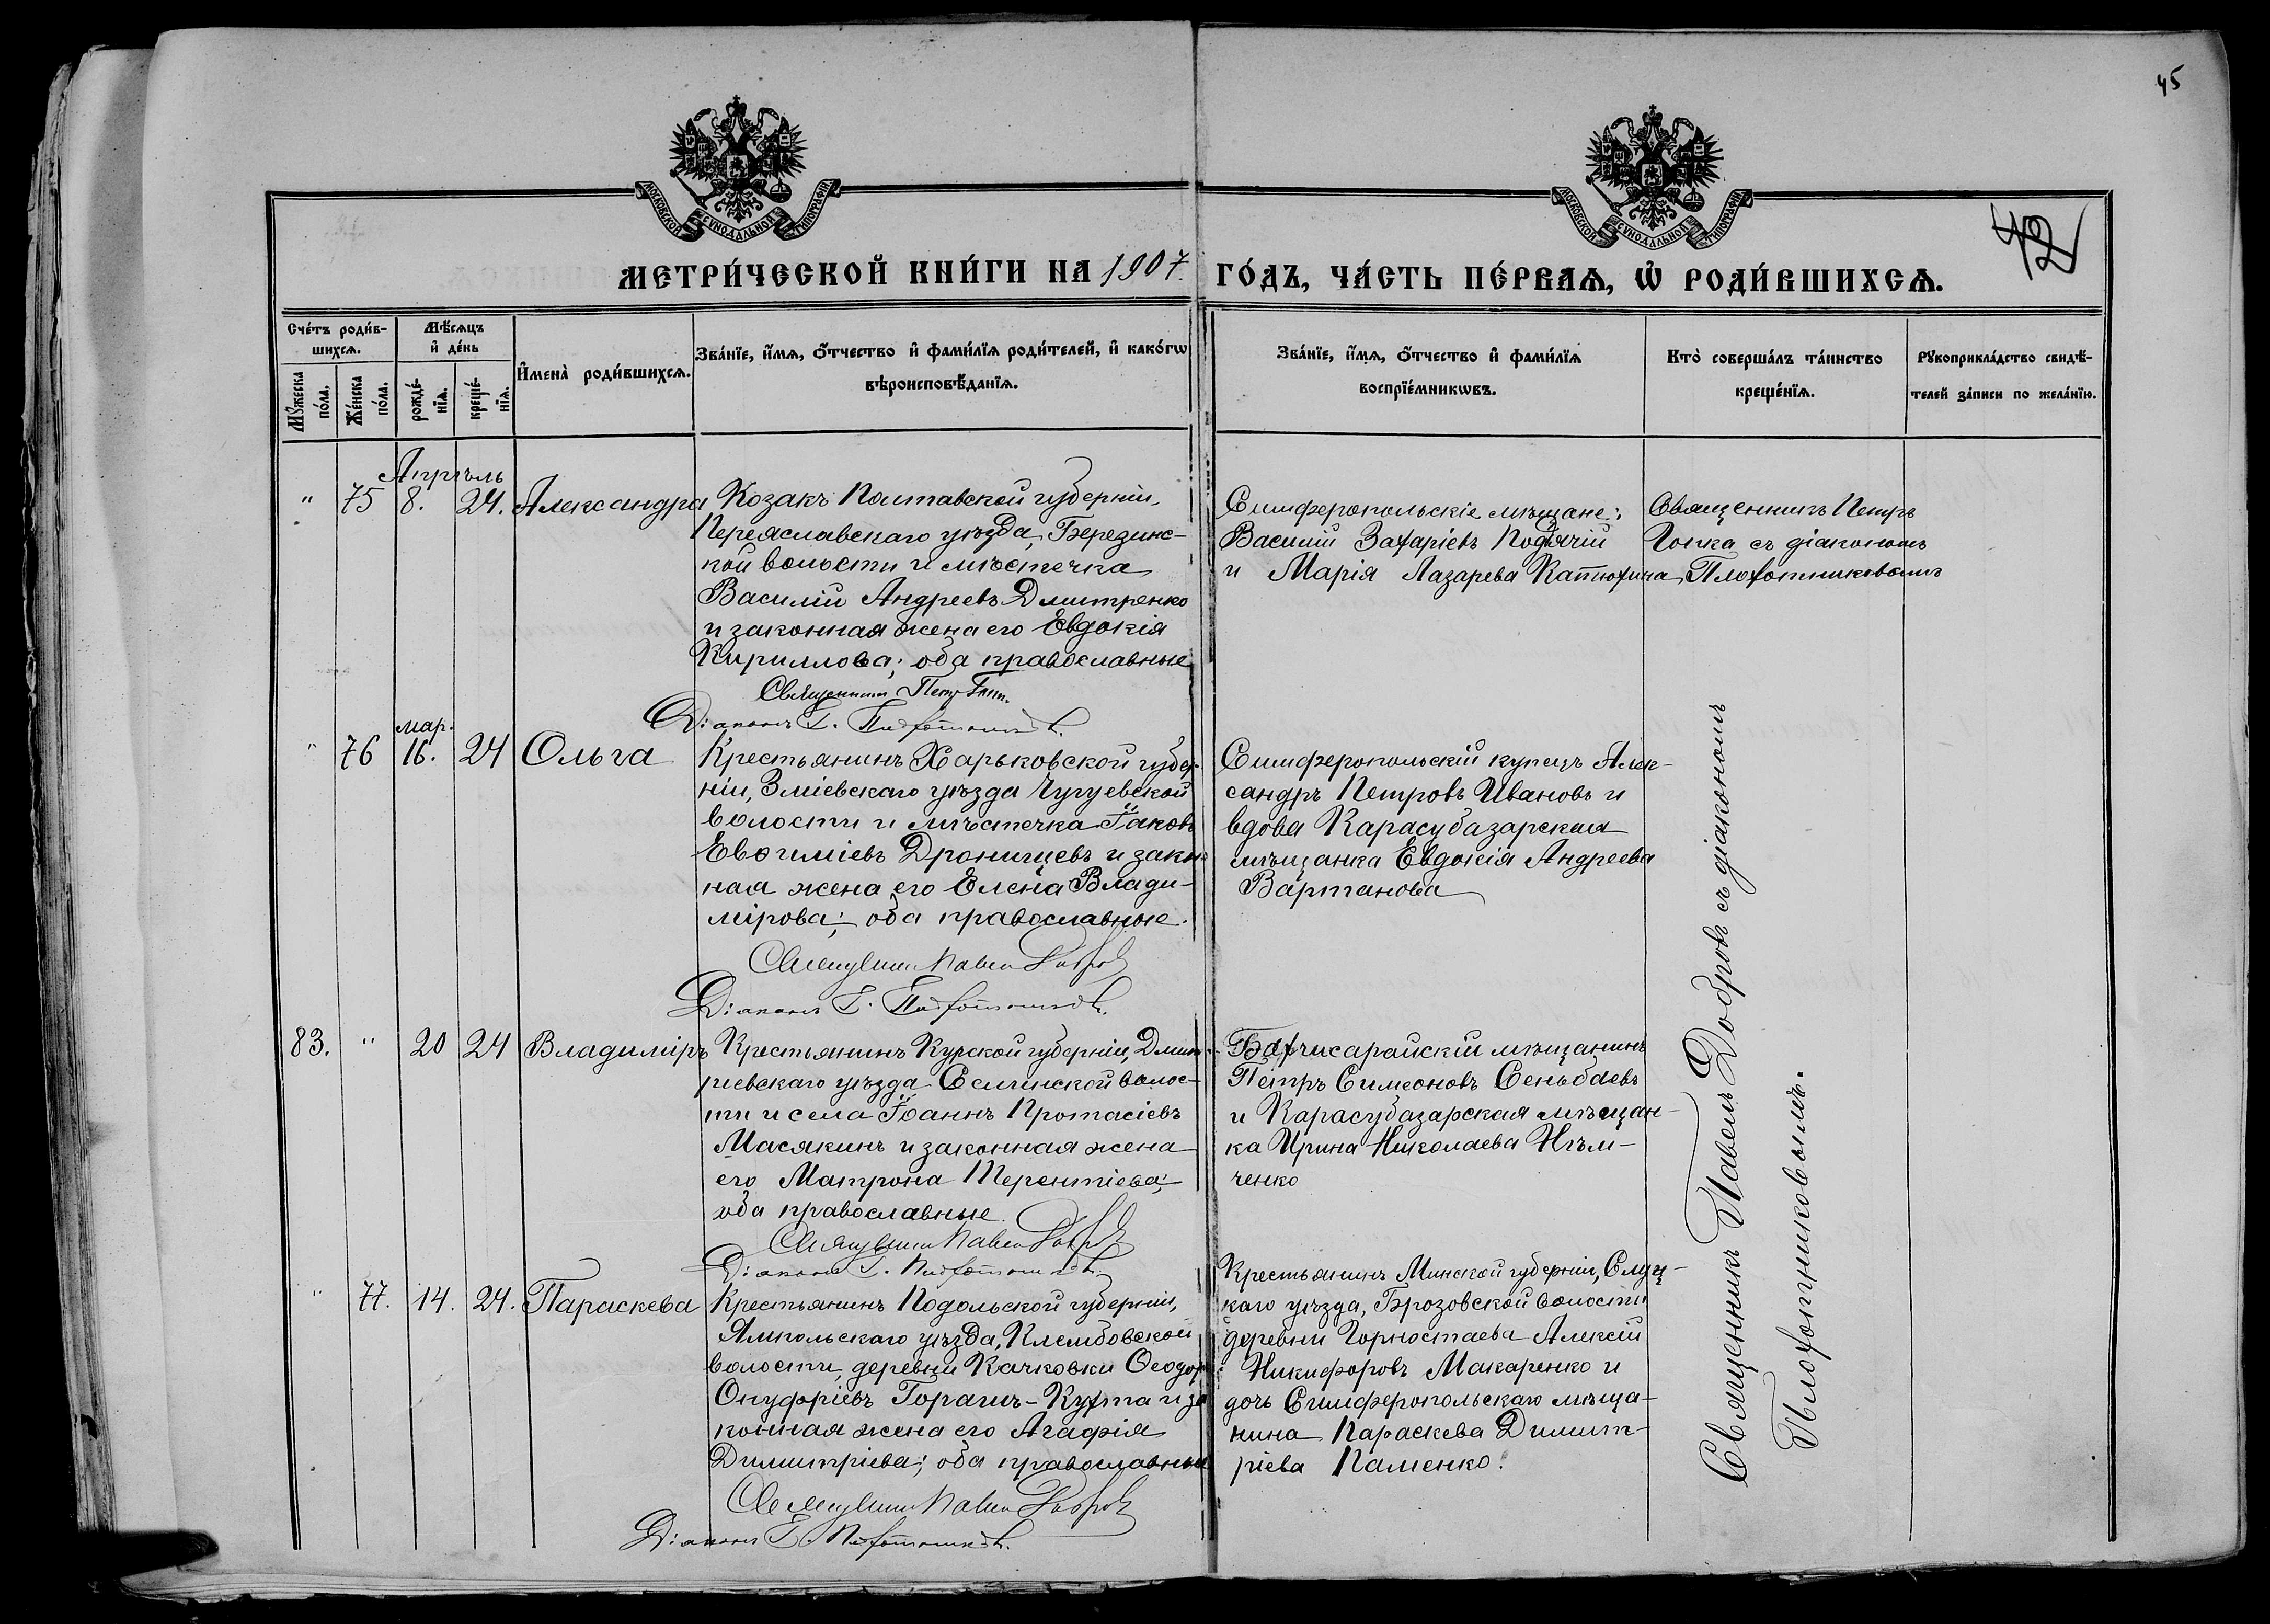 45
МОСКОВСКОЙ СѴНОДАЛЬНОЙ ТИПОГРАФІИ
МОСКОВСКОЙ СѴНОДАЛЬНОЙ ТИПОГРАФІИ
42
МЕТРИ́ЧЕСКОЙ КНИ́ГИ НА 1907. ГО́ДЪ, ЧА́СТЬ ПЕ́РВАѦ, Ѡ҆ РОДИ́ВШИХСѦ.
Сче́тъ роди́в-
шихсѧ.
Мꙋ́жеска по́ла.
Же́нска по́ла.
Мѣ́сѧцъ
и҆ де́нь
рожде́-
нїѧ.
креще́-
нїѧ.
И҆мена̀ роди́вшихсѧ.
Зва́нїе, и҆́мѧ, ѻ҆́тчество и҆ фами́лїѧ роди́телей, и҆ како́гѡ
вѣроисповѣ́данїѧ.
Зва́нїе, и҆́мѧ, ѻ҆́тчество и҆ фами́лїѧ
воспрїе́мникѡвъ.
Кто̀ соверша́лъ та́инство
креще́нїѧ.
Рꙋкоприкла́дство свидѣ́-
телей за́писи по жела́нїю.
Апрѣль
" 75 8. 24. Александра
Козакъ Полтавской губерніи,
Переяславскаго уѣзда, Березинс-
кой волости и мѣстечка
Василій Андреевъ Дмитренко
и законная жена его Евдокія
Кириллова; оба православные
Священникъ Петръ Гопка.
Діаконъ Г. Плохотниковъ.
Симферопольскіе мѣщане:
Василій Захаріевъ Подячій
и Марія Лазарева Катюхина
Священникъ Петръ
Гопка съ діакономъ
Плохотниковымъ
мар.
" 76 16. 24 Ольга
Крестьянинъ Харьковской губер-
ніи, Зміевскаго уѣзда Чугуевской
волости и мѣстечка Іаковъ
Евѳиміевъ Дронищевъ и закон-
ная жена его Елена Влади-
мірова; оба православные.
Священникъ Павелъ Добровъ
Діаконъ Г. Плохотниковъ.
Симферопольскій купецъ Алек-
сандръ Петровъ Ивановъ и
вдова Карасубазарская
мѣщанка Евдокія Андреева
Вартанова
83. " 20 24 Владиміръ
Крестьянинъ Курской губерніи, Дмит-
ріевскаго уѣзда Селинской волос-
ти и села Іоаннъ Протасіевъ
Масякинъ и законная жена
его Матрона Терентіева;
оба православные.
Священникъ Павелъ Добровъ
Діаконъ Г. Плохотниковъ.
Бахчисарайскій мѣщанинъ
Петръ Симеоновъ Сеньбаевъ
и Карасубазарская мѣщан-
ка Ирина Николаева Нѣм-
ченко
" 77. 14. 24. Параскева
Крестьянинъ Подольской губерніи,
Ямпольскаго уѣзда, Клембовской
волости, деревни Качковки Ѳеодоръ
Онуфріевъ Горашъ-Кухта и за
конная жена его Агафія
Димитріева; оба православные
Священникъ Павелъ Добровъ
Діаконъ Г. Плохотниковъ.
Крестьянинъ Минской губерніи, Слуц-
каго уѣзда, Грозовской волости
деревни Горностаева Алексій
Никифоровъ Макаренко и
дочь Симферопольскаго мѣща-
нина Параскева Димит-
ріева Паменко.
Священникъ Павелъ Добровъ съ діакономъ
Плохотниковымъ.